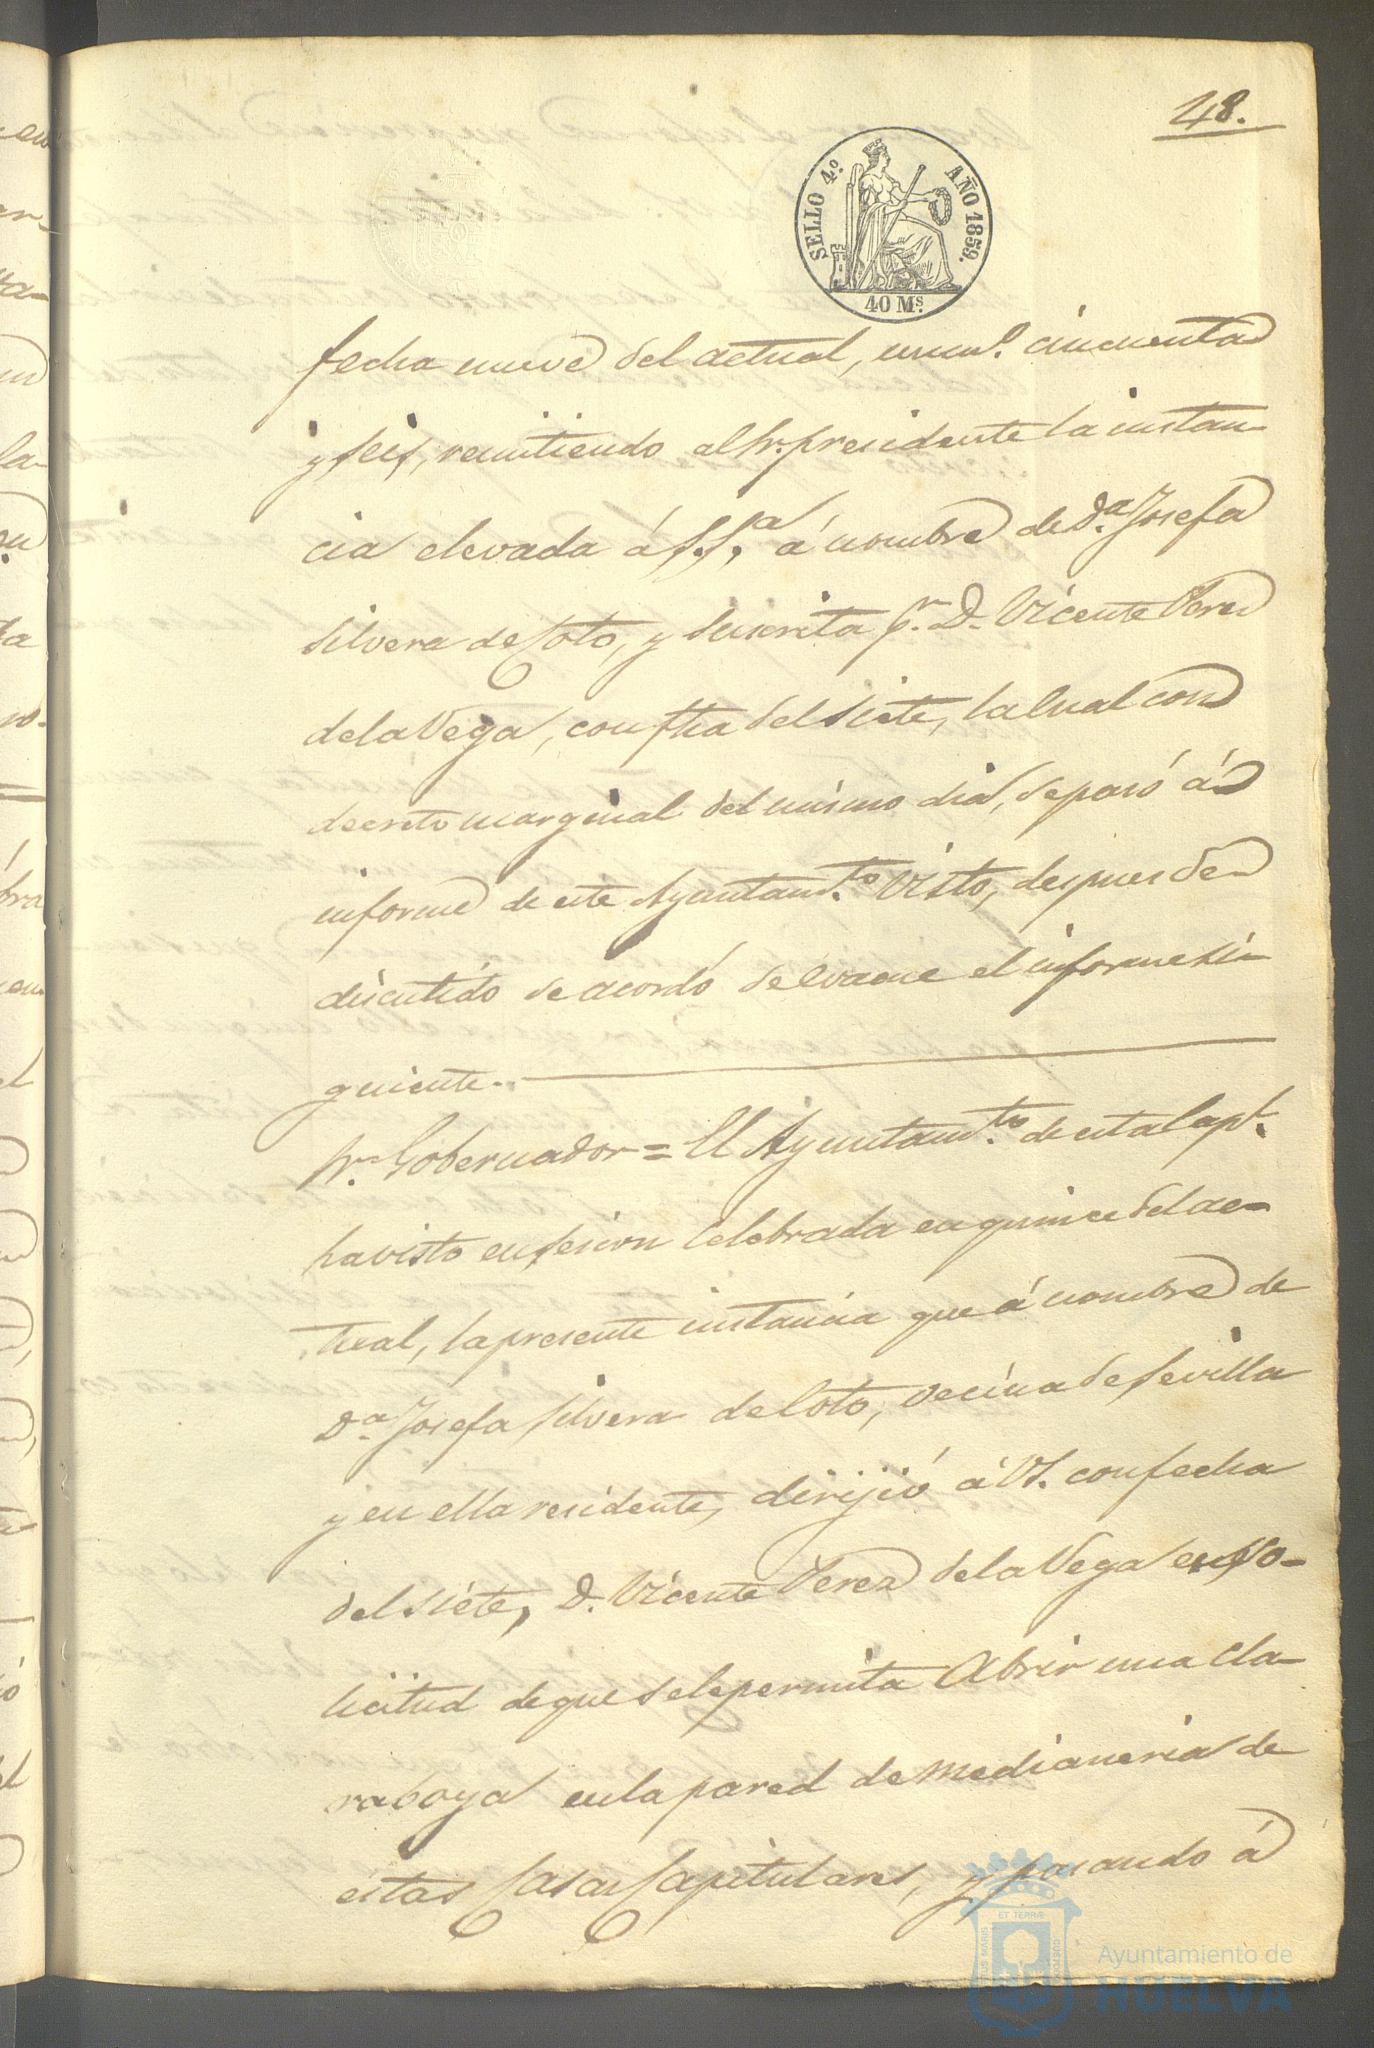 48.
SELLO 4.º AÑO 1859.
40 Ms.
fecha nueve del actual, num.º cincuenta
y seis, remitiendo al Sr. presidente la instan-
cia elevada á S.S.ª á nombre de D.ª Josefa
Silvera de Soto, y suscrita p.r D. Vicente Perez
de la Vega, con fha del siete, la Cual con
decreto marginal del mismo dia, se pasó á
informe de este Ayuntam.to Visto, despues de
discutido se acordó se evacue el informe si-
guiente.
Sr. Gobernador = El Ayuntam.to de esta Capl.
ha visto en sesion Celebrada en quince del ac-
tual, la presente instancia que á nombre de
D.ª Josefa Silvera de Soto, vecina de Sevilla
y en ella residente, dirijió á VS. con fecha
del siete, D. Vicente Perez de la Vega en so-
licitud de que se le permita Abrir una Cla-
raboya en la pared de medianeria de
estas Casas Capitulares, y pasando á
Ayuntamiento de
HUELVA